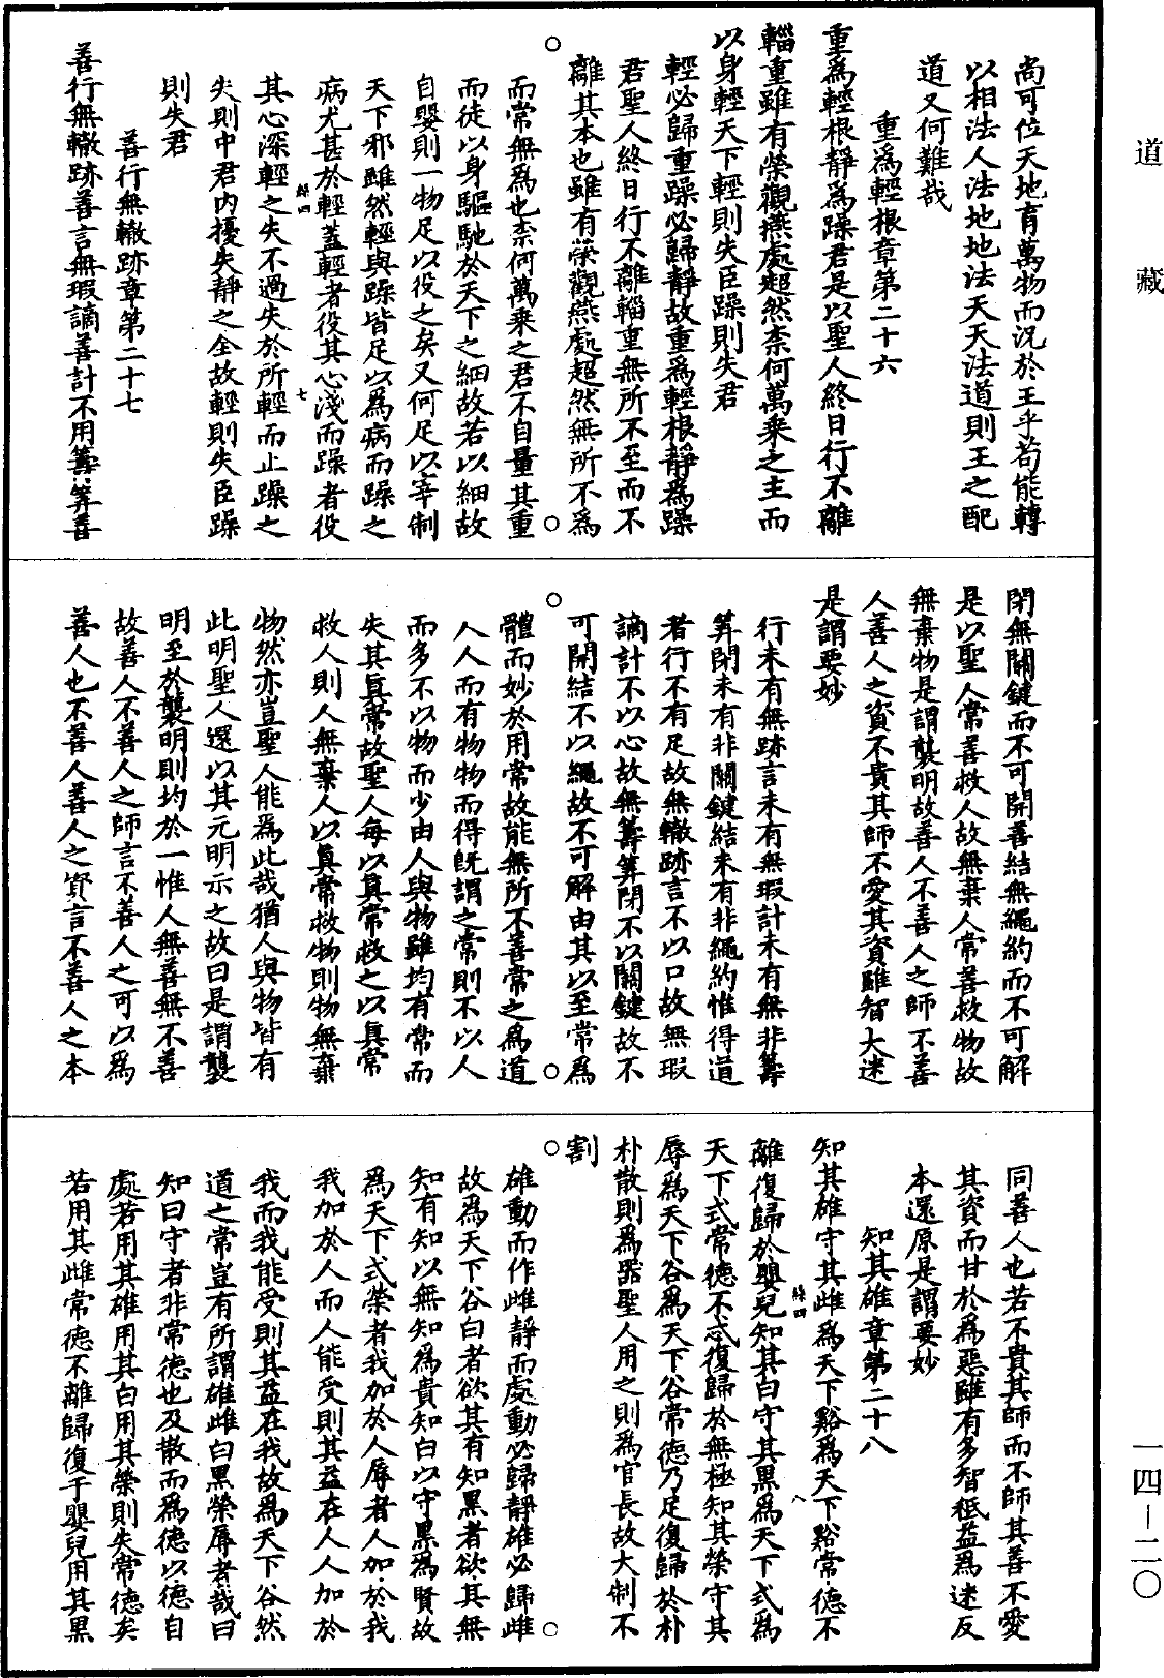 道藏
尚可位天地育萬物而況於王乎苟能轉
以相法人法地地法天天法道則王之配
道又何難哉
重爲輕根章第二十六
重爲輕根靜爲躁君是以聖人終日行不離
輜重雖有榮觀燕處超然柰何萬乘之主而
以身輕天下輕則失臣躁則失君
輕必歸重躁必歸靜故重爲輕根靜爲躁
君聖人終日行不離輜重無所不至而不
離其本也雖有榮觀燕處超然無所不爲
而常無爲也柰何萬乘之君不自量其重
而徒以身驅馳於天下之細故若以細故
自嬰則一物足以役之矣又何足以宰制
天下邪雖然輕與躁皆足以爲病而躁之
病尤甚於輕蓋輕者役其心淺而躁者役
緜四
七
其心深輕之失不過失於所輕而止躁之
失則中君內擾失靜之全故輕則失臣躁
則失君
善行無轍跡章第二十七
善行無轍跡善言無瑕讁善計不用籌筭善
閉無關鍵而不可開善結無繩約而不可解
是以聖人常善救人故無棄人常善救物故
無棄物是謂襲明故善人不善人之師不善
人善人之資不貴其師不愛其資雖智大迷
是謂要妙
行未有無跡言未有無瑕計未有無非籌
筭閉未有非關鍵結未有非繩約惟得道
者行不有足故無轍跡言不以口故無瑕
讁計不以心故無籌筭閉不以關鍵故不
可開結不以繩故不可解由其以至常爲
體而妙於用常故能無所不善常之爲道
人人而有物物而得旣謂之常則不以人
而多不以物而少由人與物雖均有常而
失其眞常故聖人每以眞常救之以眞常
救人則人無棄人以眞常救物則物無棄
物然亦豈聖人能爲此哉猶人與物皆有
此明聖人還以其元明示之故曰是謂襲
明至於襲明則均於一惟人無善無不善
故善人不善人之師言不善人之可以爲
善人也不善人善人之資言不善人之本
同善人也若不貴其師而不師其善不愛
其資而甘於爲惡雖有多智秪益爲迷反
本還原是謂要妙
知其雄章第二十八
知其雄守其雌爲天下谿爲天下谿常德不
緜四
八
離復歸於嬰兒知其白守其黑爲天下式爲
天下式常德不忒復歸於無極知其榮守其
辱爲天下谷爲天下谷常德乃足復歸於朴
朴散則爲器聖人用之則爲官長故大制不
割
雄動而作雌靜而處動必歸靜雄必歸雌
故爲天下谷白者欲其有知黑者欲其無
知有知以無知爲貴知白以守黑爲賢故
爲天下式榮者我加於人辱者人加於我
我加於人而人能受則其益在人人加於
我而我能受則其益在我故爲天下谷然
道之常豈有所謂雄雌白黑榮辱者哉曰
知曰守者非常德也及散而爲德以德自
處若用其雄用其白用其榮則失常德矣
若用其雌常德不離歸復于嬰兒用其黑
一四—二〇